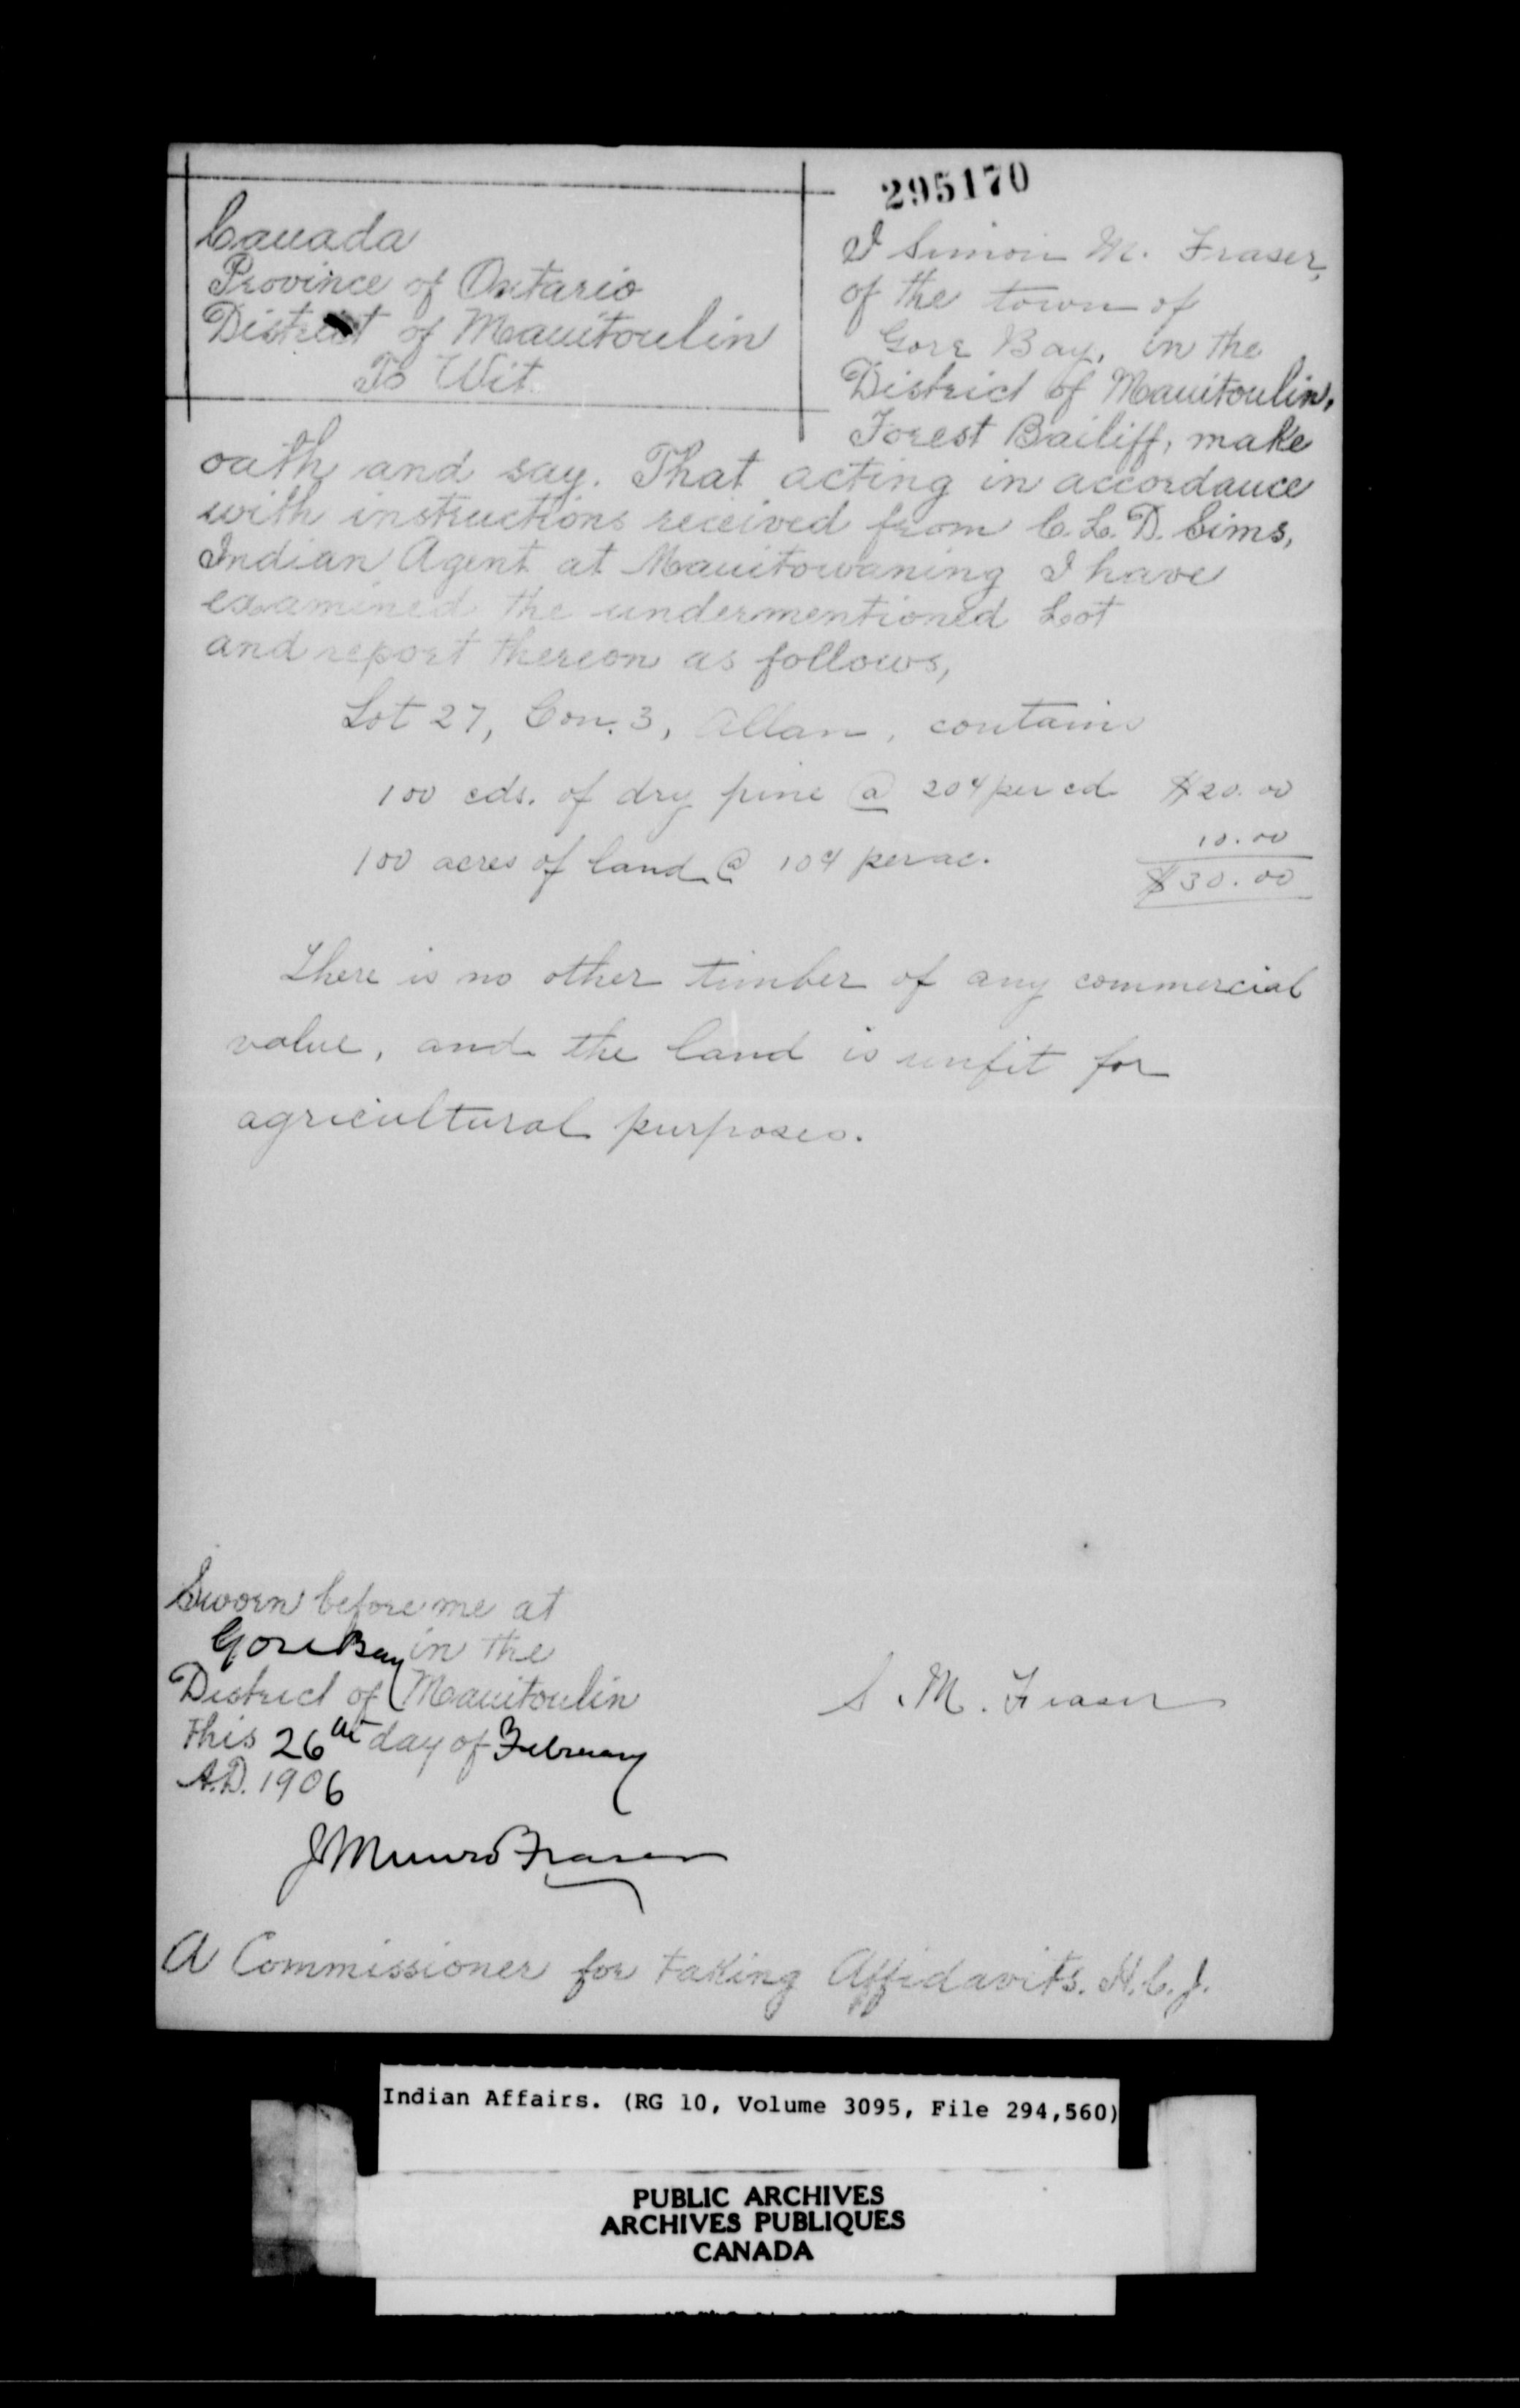 295170
Canada
Province of Ontario
District of Manitoulin
To Wit
I Simon M. Fraser,
of the town of
Gore Bay, in the
District of Manitoulin,
Forest Bailiff, make
oath and say. That acting in accordance
with instructions received from C. L. D. Sims,
Indian Agent at Manitowaning I have
examined the undermentioned Lot
and report thereon as follows,
Lot 27, Con. 3, Allan, contains
100 cds. of dry pine @ 20¢ per cd $20.00
100 acres of land @ 10¢ per ac. 10.00
$30.00
There is no other timber of any commercial
value, and the land is unfit for
agricultural purposes.
Sworn before me at
Gore Bay in the
District of Manitoulin
This 26th day of February
A.D. 1906
S. M. Fraser
J Munro Fraser
A Commissioner for taking Affidavits. H.C.J.
Indian Affairs. (RG 10, Volume 3095, File 294,560)
PUBLIC ARCHIVES
ARCHIVES PUBLIQUES
CANADA